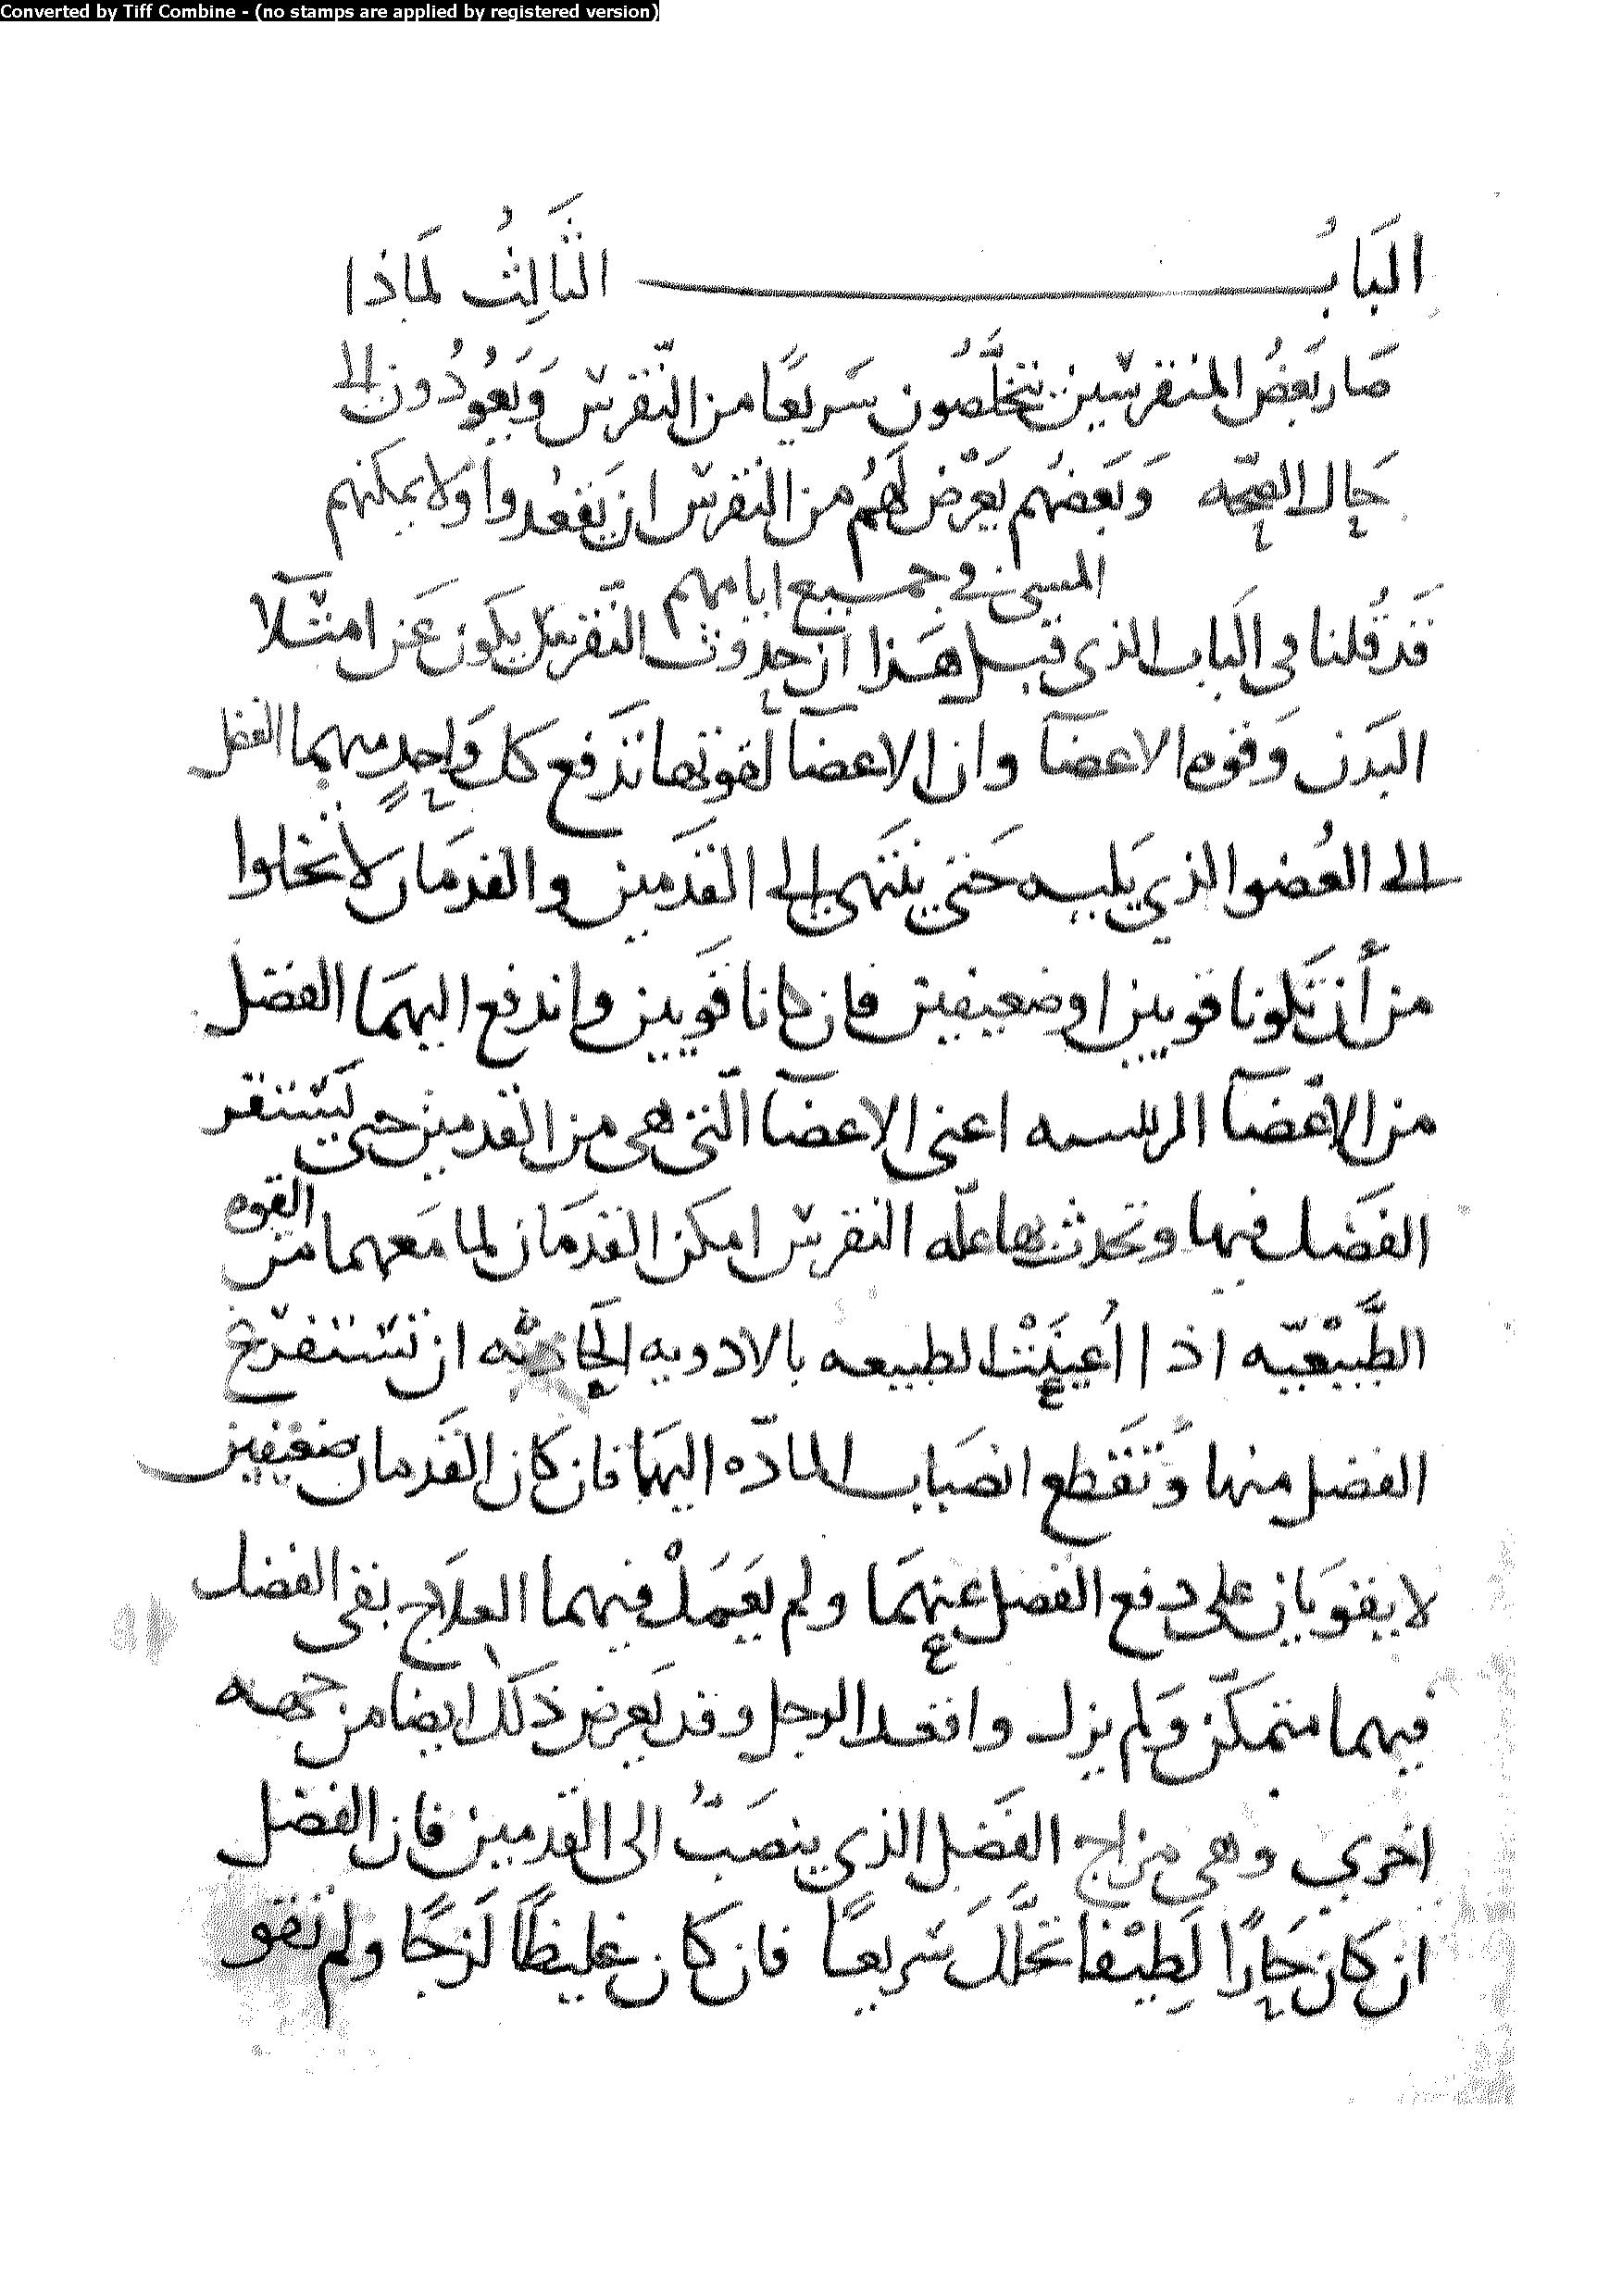 Converted by Tiff Combine - (no stamps are applied by registered version)
البَابُ الثَّالِثُ لمَاذا
صَار بَعضُ المنقرسين يتخلَّصُون سَريعًا من النّقرس وَيَعُودُون الى
حَال الصّحّه وَبَعضهُم يَعْرض لَهُم من النقرس ان يَقعُدوا وَلا يمكنهم
المشي في جميع ايامهم
قَد قُلنا في البَاب الذي قبل هَذا ان حدوث النّقرس يكوُن عَن امتلآ
البَدَن وَقوه الاعضآ وان الاعضآ لقوتها تَدفع كل وَاحِدٍ منهما الفضل
الى العُضو الذي يَليه حَتى ينتَهي الى القَدمين والقدمَان لا تخلوا
من أن تَكونا قويين او ضعيفين فان كانا قَويين واندفع اليهمَا الفضل
من الاعضآ الرئيسه اعني الاعضآ الّتي هي من القدمين حتى لَيستقر
الفَضل فيها وتحدث بها علّه النقرس امكن القدمَان لما مَعهما من القوه
الطَّبيْعيّه اذا اُعينَتْ الطبيعه بالادويه الحَادثْه ان تَستفرغ
الفضل منها وَتَقَطع انصَباب المادّه اليهَا فان كان القَدمان ضعيفين
لا يقوَيان على دفع الفضل عنهمَا ولم يَعمَلْ فيهما العلَاج بقى الفضل
فيهما متمكّن وَلم يزل واقعد الرجل وقد يَعرض ذَلك ايضا من جهه
اخري وهي مزاج الفَضل الذي ينصَبُّ الى القدمين فان الفضل
ان كان حَارًا لَطِيْفا تحلَّلَ سَريعًا فان كان غليظًا لَزجًا ولم تقو